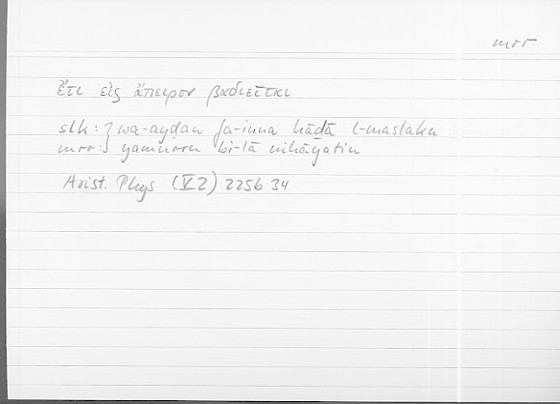 mrr
ἔτι εἰς ἄπειρον βαδιεῖται
slk: } wa-ayḍan fa-inna hāḏā l-maslaka
mrr: } yamurru bi-lā nihāyatin
Arist. Phys (V 2) 225b 34